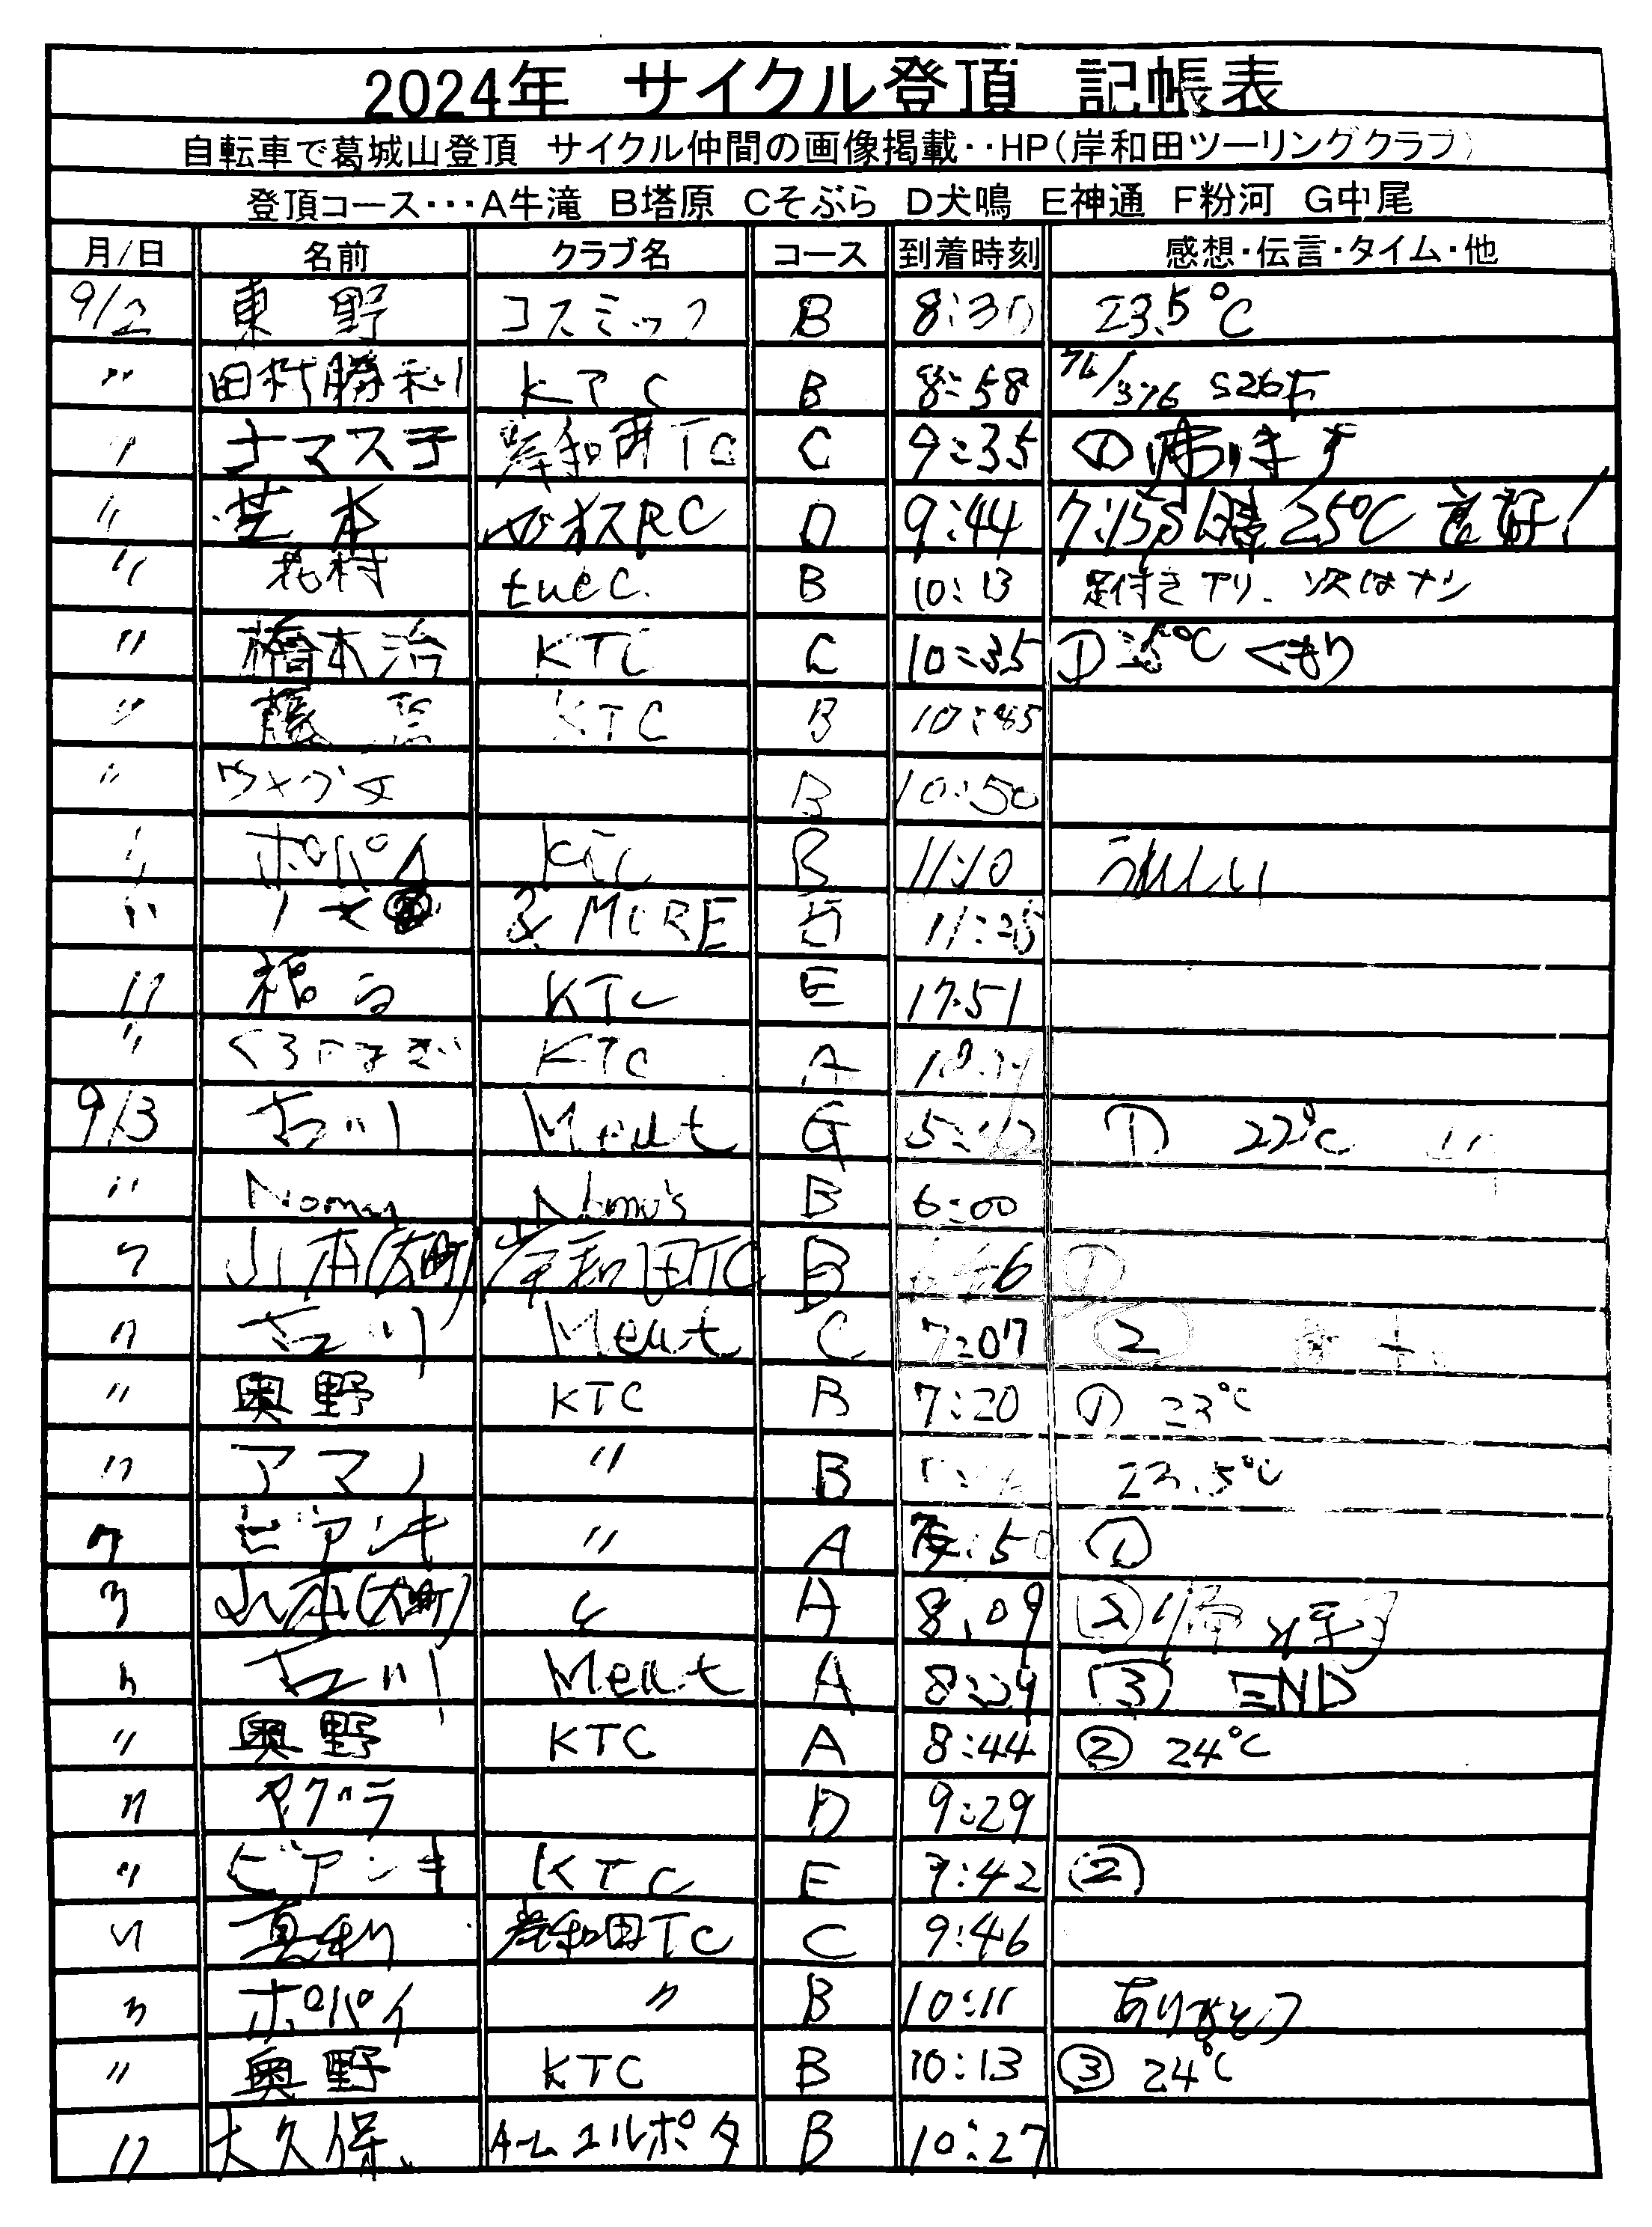 2024年 サイクル登頂 記帳表
自転車で葛城山登頂 サイクル仲間の画像掲載‥HP(岸和田ツーリングクラブ)
登頂コース・・・A牛滝 B塔原 Cそぶら D犬鳴 E神通 F粉河 G中尾
月/日 名前 クラブ名 コース 到着時刻 感想・伝言・タイム・他
9/2 東野 コスミック B 8:30 23.5℃
〃 田村勝利 KTC B 8:58 76/376 S26F
〃 ナマス子 岸和田TC C 9:35 ① 帰ります
〃 芝本 RC D 9:44 7:15 晴 25℃ 良好!
〃 花村 tuec. B 10:13 足付きアリ. 次はナシ
〃 橋本治 KTC C 10:35 ① 25℃ くもり
〃 藤 KTC B 10:45
〃 B 10:50
〃 ポパイ KTC B 11:10 うれしい
〃 & MORE 11:
〃 KTC E 17:51
〃 KTC A
9/3 古川 Meut G 5: ① 22℃
〃 Nomu Nomu's B 6:00
〃 山本(大町) 岸和田TC B ①
〃 古川 Meut C 7:07 ②
〃 奥野 KTC B 7:20 ① 23℃
〃 アマノ 〃 B 23.5℃
〃 ビアンキ 〃 A 7:50 ①
〃 山本(大町) 〃 A 8:09 ②
〃 古川 Meut A 8: ③ END
〃 奥野 KTC A 8:44 ② 24℃
〃 D 9:29
〃 ビアンキ KTC E 9:42 ②
〃 真利 岸和田TC C 9:46
〃 ポパイ 〃 B 10:11 ありがとう
〃 奥野 KTC B 10:13 ③ 24℃
〃 大久保 チームエルポタ B 10:27